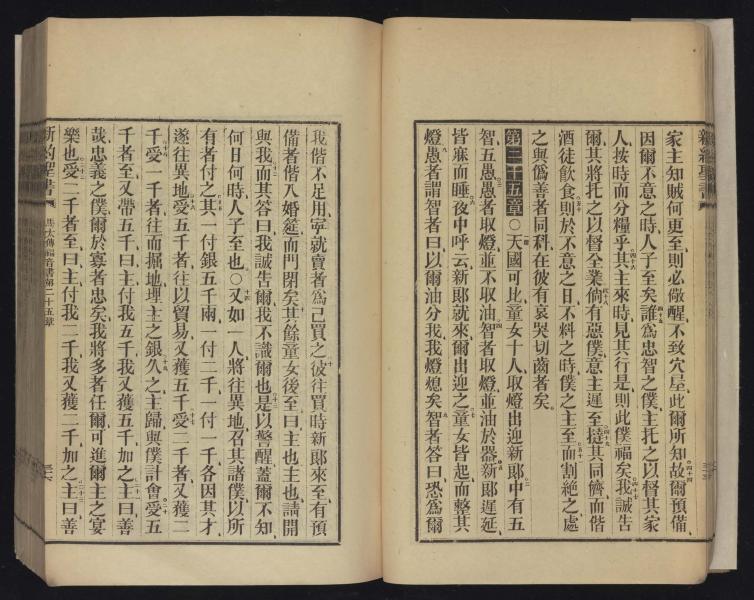 家主知賊何更至則必儆醒不致穴屋此爾所知故爾預備
因爾不意之時人子至矣誰爲忠智之僕主托之以督其家
人按時而分糧乎其主來時見其行是則此僕福矣我誠告
爾其將托之以督全業倘有惡僕意主遲至撻其同儕而偕
酒徒飲食則於不意之日不料之時僕之主至而割絶之處
之與僞善者同科在彼有哀哭切齒者矣
第二十五章○天國可比童女十人取燈出迎新郎中有五
智五愚愚者取燈並不取油智者取燈並油於器新郎遲延
皆寐而睡夜中呼云新郎就來爾出迎之童女皆起而整其
燈愚者謂智者曰以爾油分我我燈熄矣智者答曰恐爲爾
我偕不足用寧就賣者爲己買之彼往買時新郎來至有預
備者偕入婚筵而門閉矣其餘童女後至曰主也主也請開
與我而其答曰我誠告爾我不識爾也是以警醒蓋爾不知
何日何時人子至也○又如一人將往異地召其諸僕以所
有者付之其一付銀五千兩一付二千一付一千各因其才
遂往異地愛五千者往以貿易又獲五千愛二千者又獲二
千愛一千者往而掘地埋主之銀久之主歸與僕計會愛五
千者至又帶五千曰主付我五千我又獲五千加之主曰善
哉忠義之僕爾於寡者忠矣我將多者任爾可進爾主之宴
樂也愛二千者至曰主付我二千我又獲二千加之主曰善
新約聖書
馬太傳福音書第二十五章